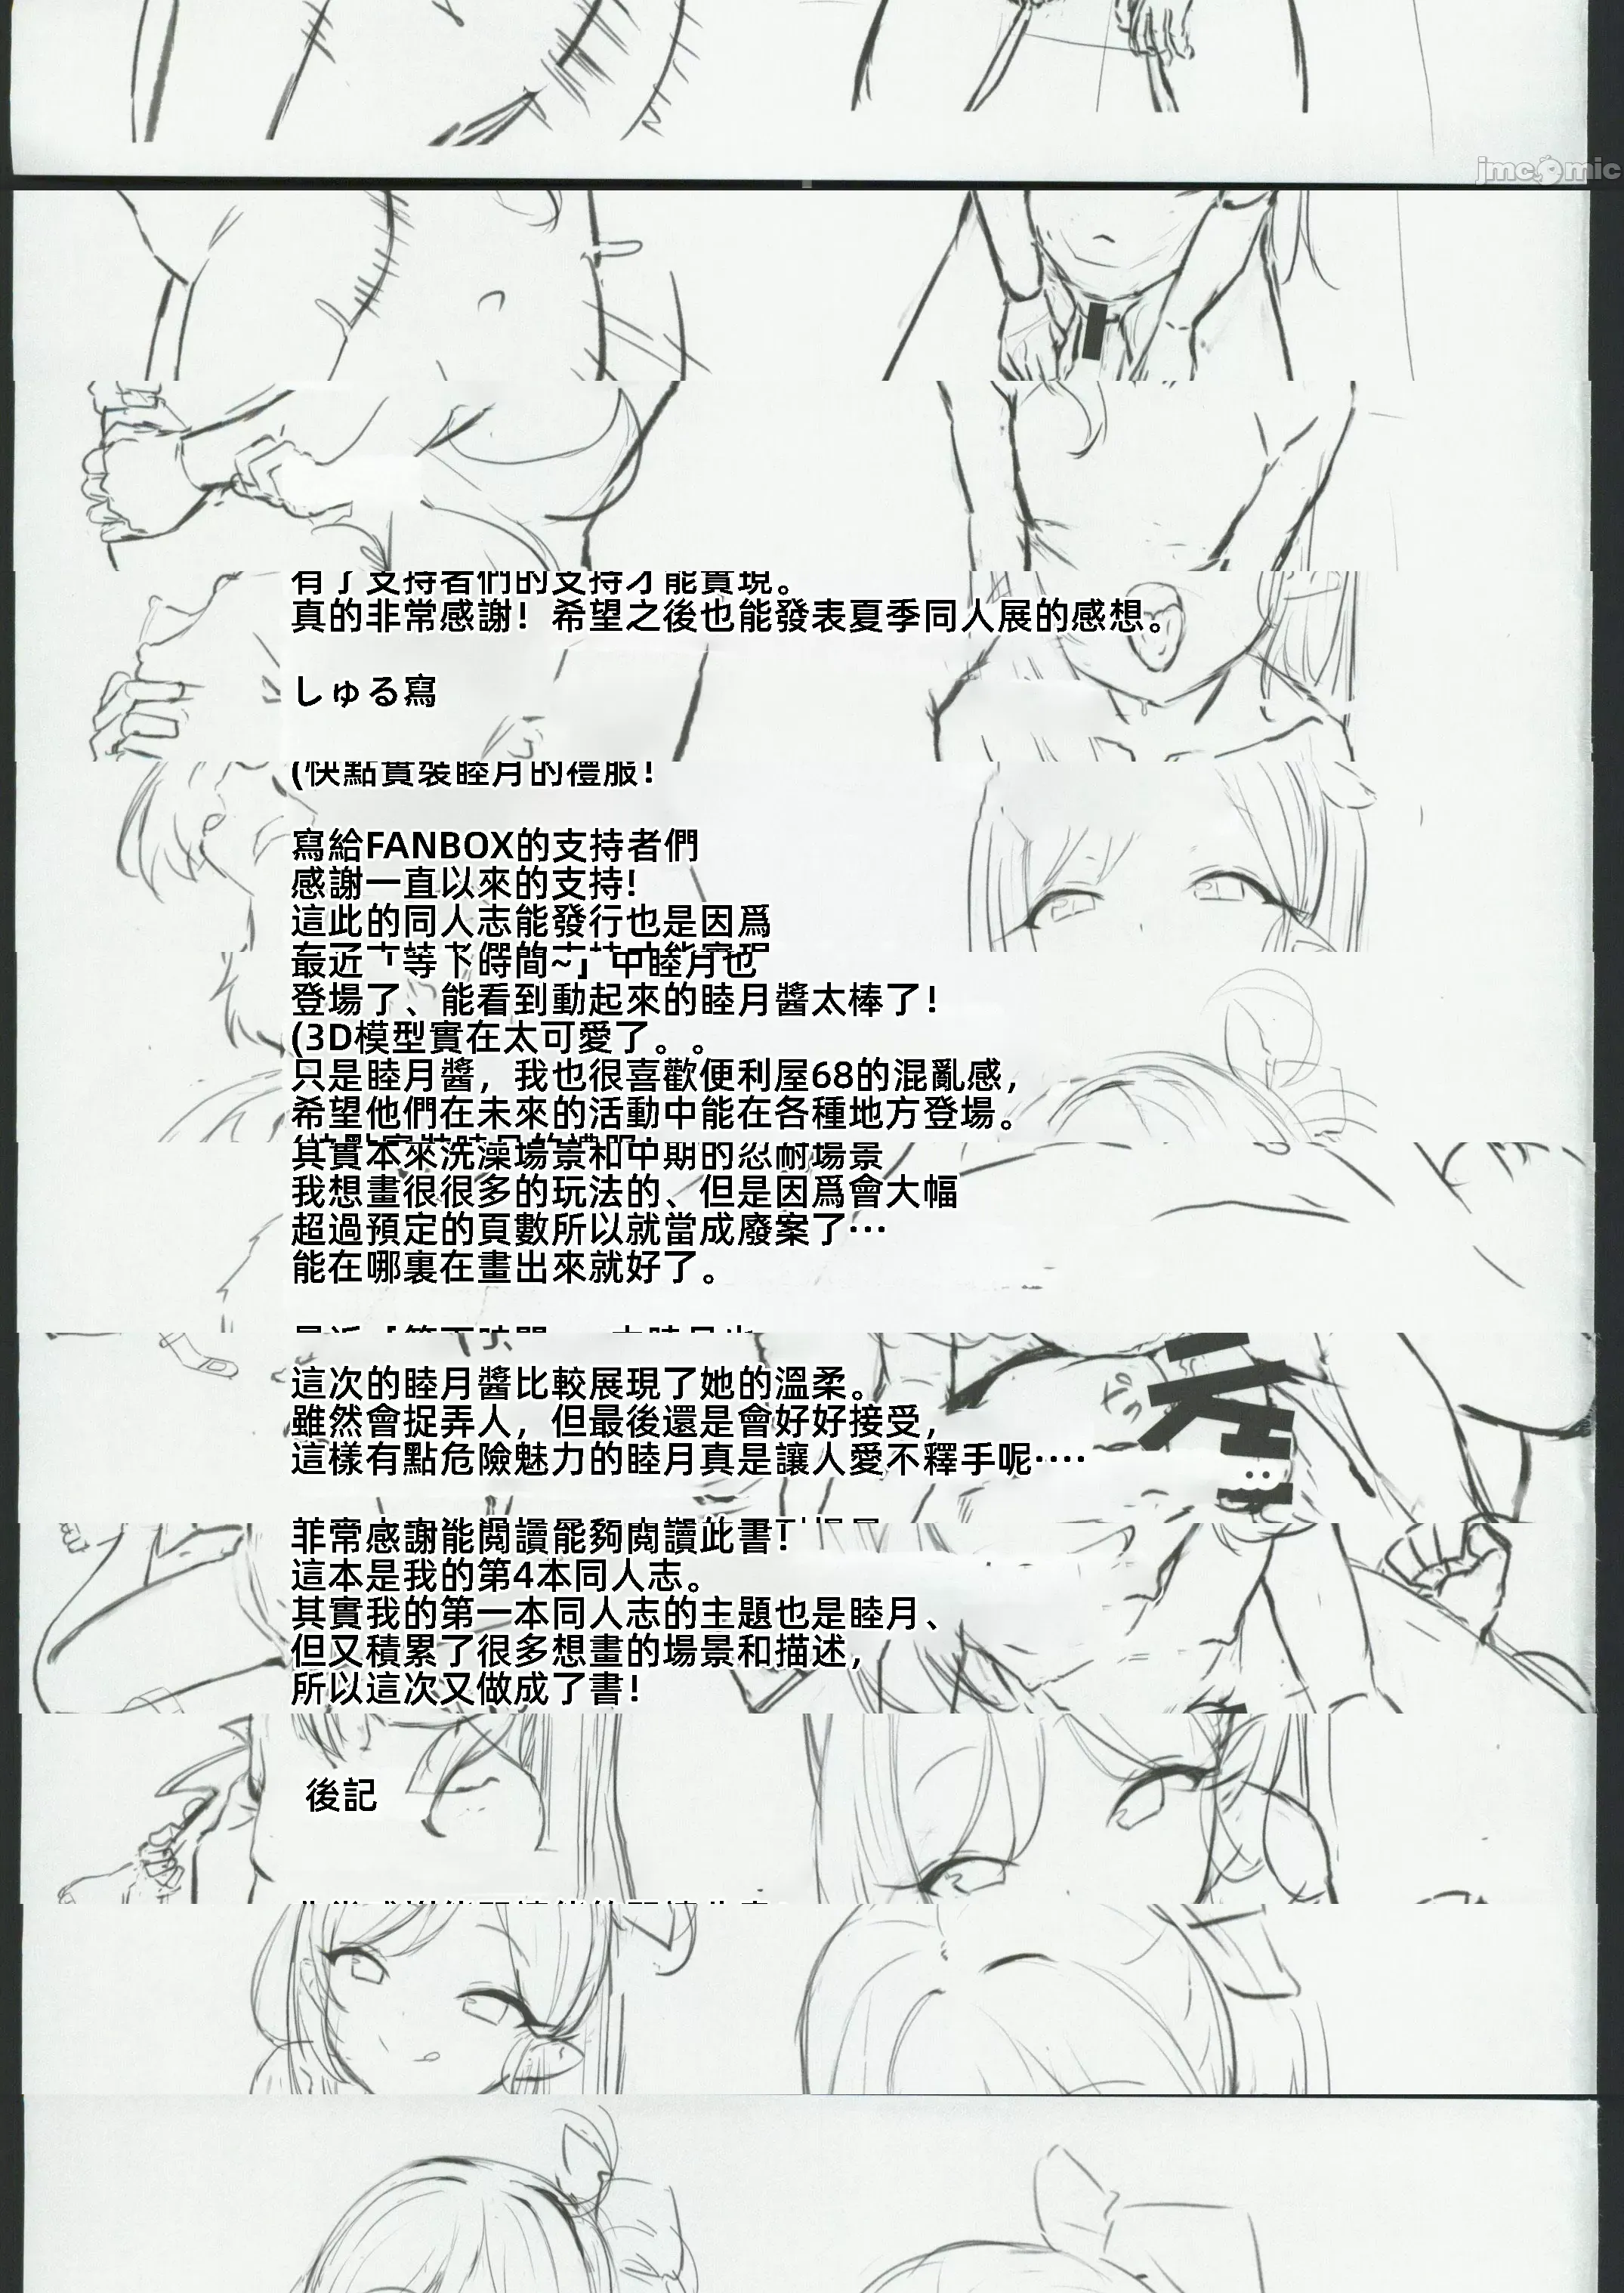 jmcomic
有了支持者們的支持才能實現。
真的非常感謝！希望之後也能發表夏季同人展的感想。
しゅる寫
(快點實裝睦月的禮服！
寫給FANBOX的支持者們
感謝一直以來的支持！
這此的同人志能發行也是因爲
最近「等下時間~」中睦月也
登場了、能看到動起來的睦月醬太棒了！
(3D模型實在太可愛了。。
只是睦月醬，我也很喜歡便利屋68的混亂感，
希望他們在未來的活動中能在各種地方登場。
其實本來洗澡場景和中期的忍耐場景
我想畫很很多的玩法的、但是因爲會大幅
超過預定的頁數所以就當成廢案了…
能在哪裏在畫出來就好了。
這次的睦月醬比較展現了她的溫柔。
雖然會捉弄人，但最後還是會好好接受，
這樣有點危險魅力的睦月真是讓人愛不釋手呢‥‥
‥
非常感謝能閱讀能夠閱讀此書！
這本是我的第4本同人志。
其實我的第一本同人志的主題也是睦月、
但又積累了很多想畫的場景和描述，
所以這次又做成了書！
後記